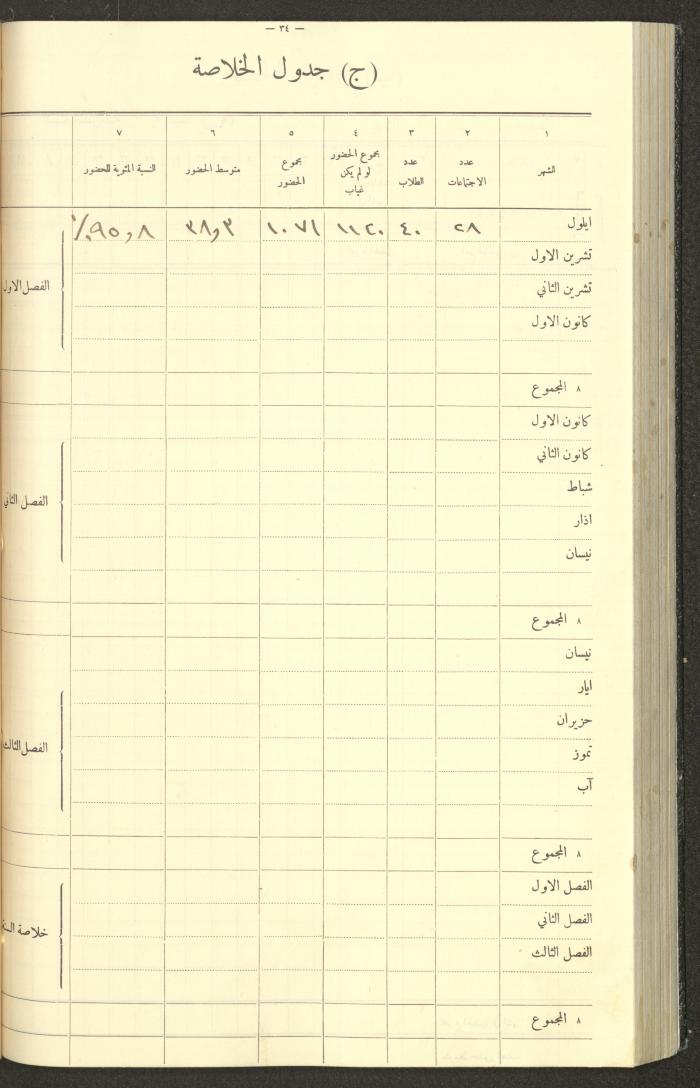 — ٣٤ —
(ج) جدول الخلاصة
١ ٢ ٣ ٤ ٥ ٦ ٧
الشهر
عدد الاجتماعات
عدد الطلاب
مجموع الحضور لو لم يكن غياب
مجموع الحضور
متوسط الحضور
النسبة المئوية للحضور
ايلول ٢٨ ٤٠ ١١٢٠ ١٠٧١ ٣٨,٣ ٩٥,٨٪
تشرين الاول
تشرين الثاني
كانون الاول
الفصل الاول
٨ المجموع
كانون الاول
كانون الثاني
شباط
اذار
نيسان
الفصل الثاني
٨ المجموع
نيسان
ايار
حزيران
تموز
آب
الفصل الثالث
٨ المجموع
الفصل الاول
الفصل الثاني
الفصل الثالث
خلاصة
٨ المجموع